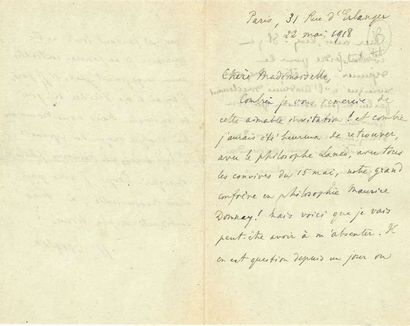 Paris, 31 Rue d'Erlanger
22 mai 1918
Chère Mademoiselle,
Combien je vous remercie de
cette aimable invitation ! et combien
j'aurais été heureux de retrouver,
avec le philosophe Lanes, avec tous
les convives du 15 mai, notre grand
confrère en philosophie Maurice
Donnay ! Mais voici que je vais
peut-être avoir à m'absenter. Il
en est question depuis un jour ou